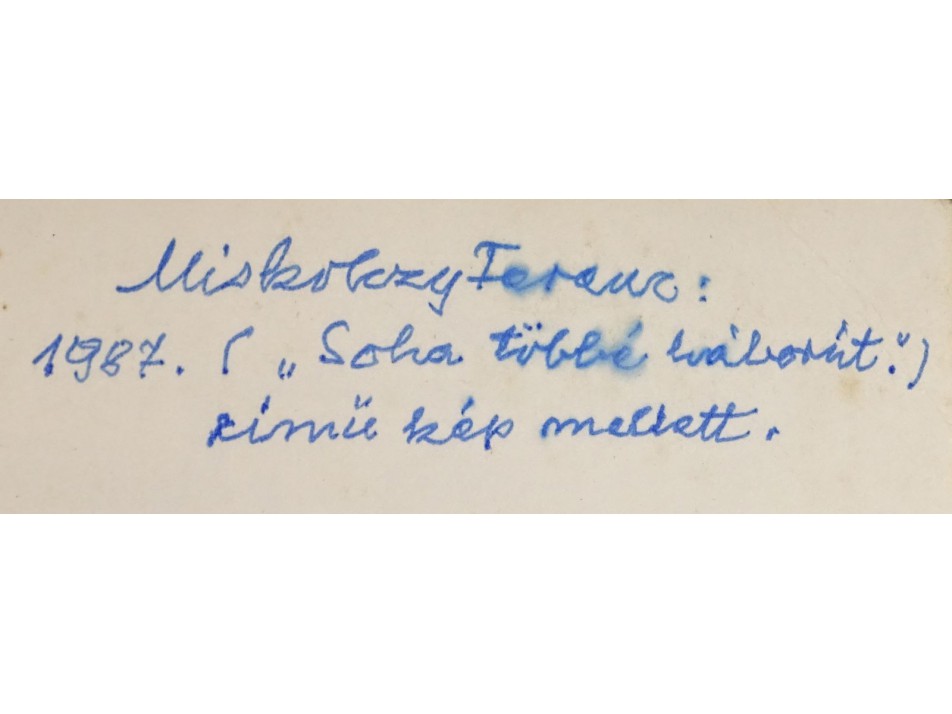 Miskolczy Ferenc:
1987. ( „Soha többé háborút.")
cimü kép mellett.